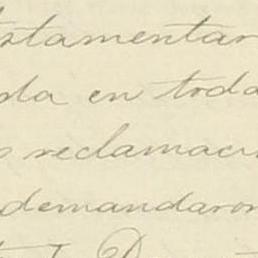 stamentar
da en toda
reclamaci
demandaron